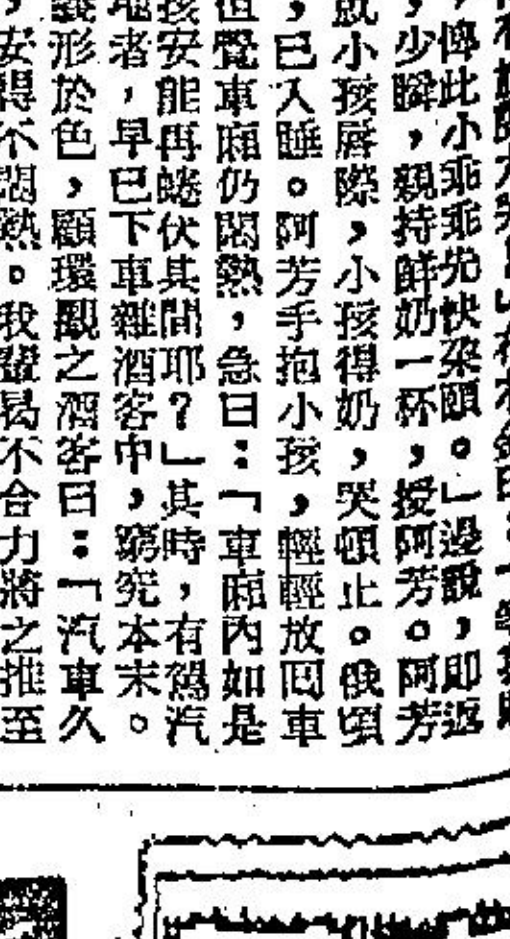 俾此小乖乖先快朶頤。」邊說,即返
,少瞬,親持鮮奶一杯,授阿芳。阿芳
就小孩唇際,小孩得奶,哭頓止。俄頃
,已入睡。阿芳手抱小孩,輕輕放囘車
但覺車廂仍悶熱,急曰:「車廂內如是
孩安能再蜷伏其間耶?」其時,有駕汽
地者,早已下車雜酒客中,窮究本末。
義形於色,顧環觀之酒客曰:「汽車久
,安得不悶熱。我輩曷不合力將之推至